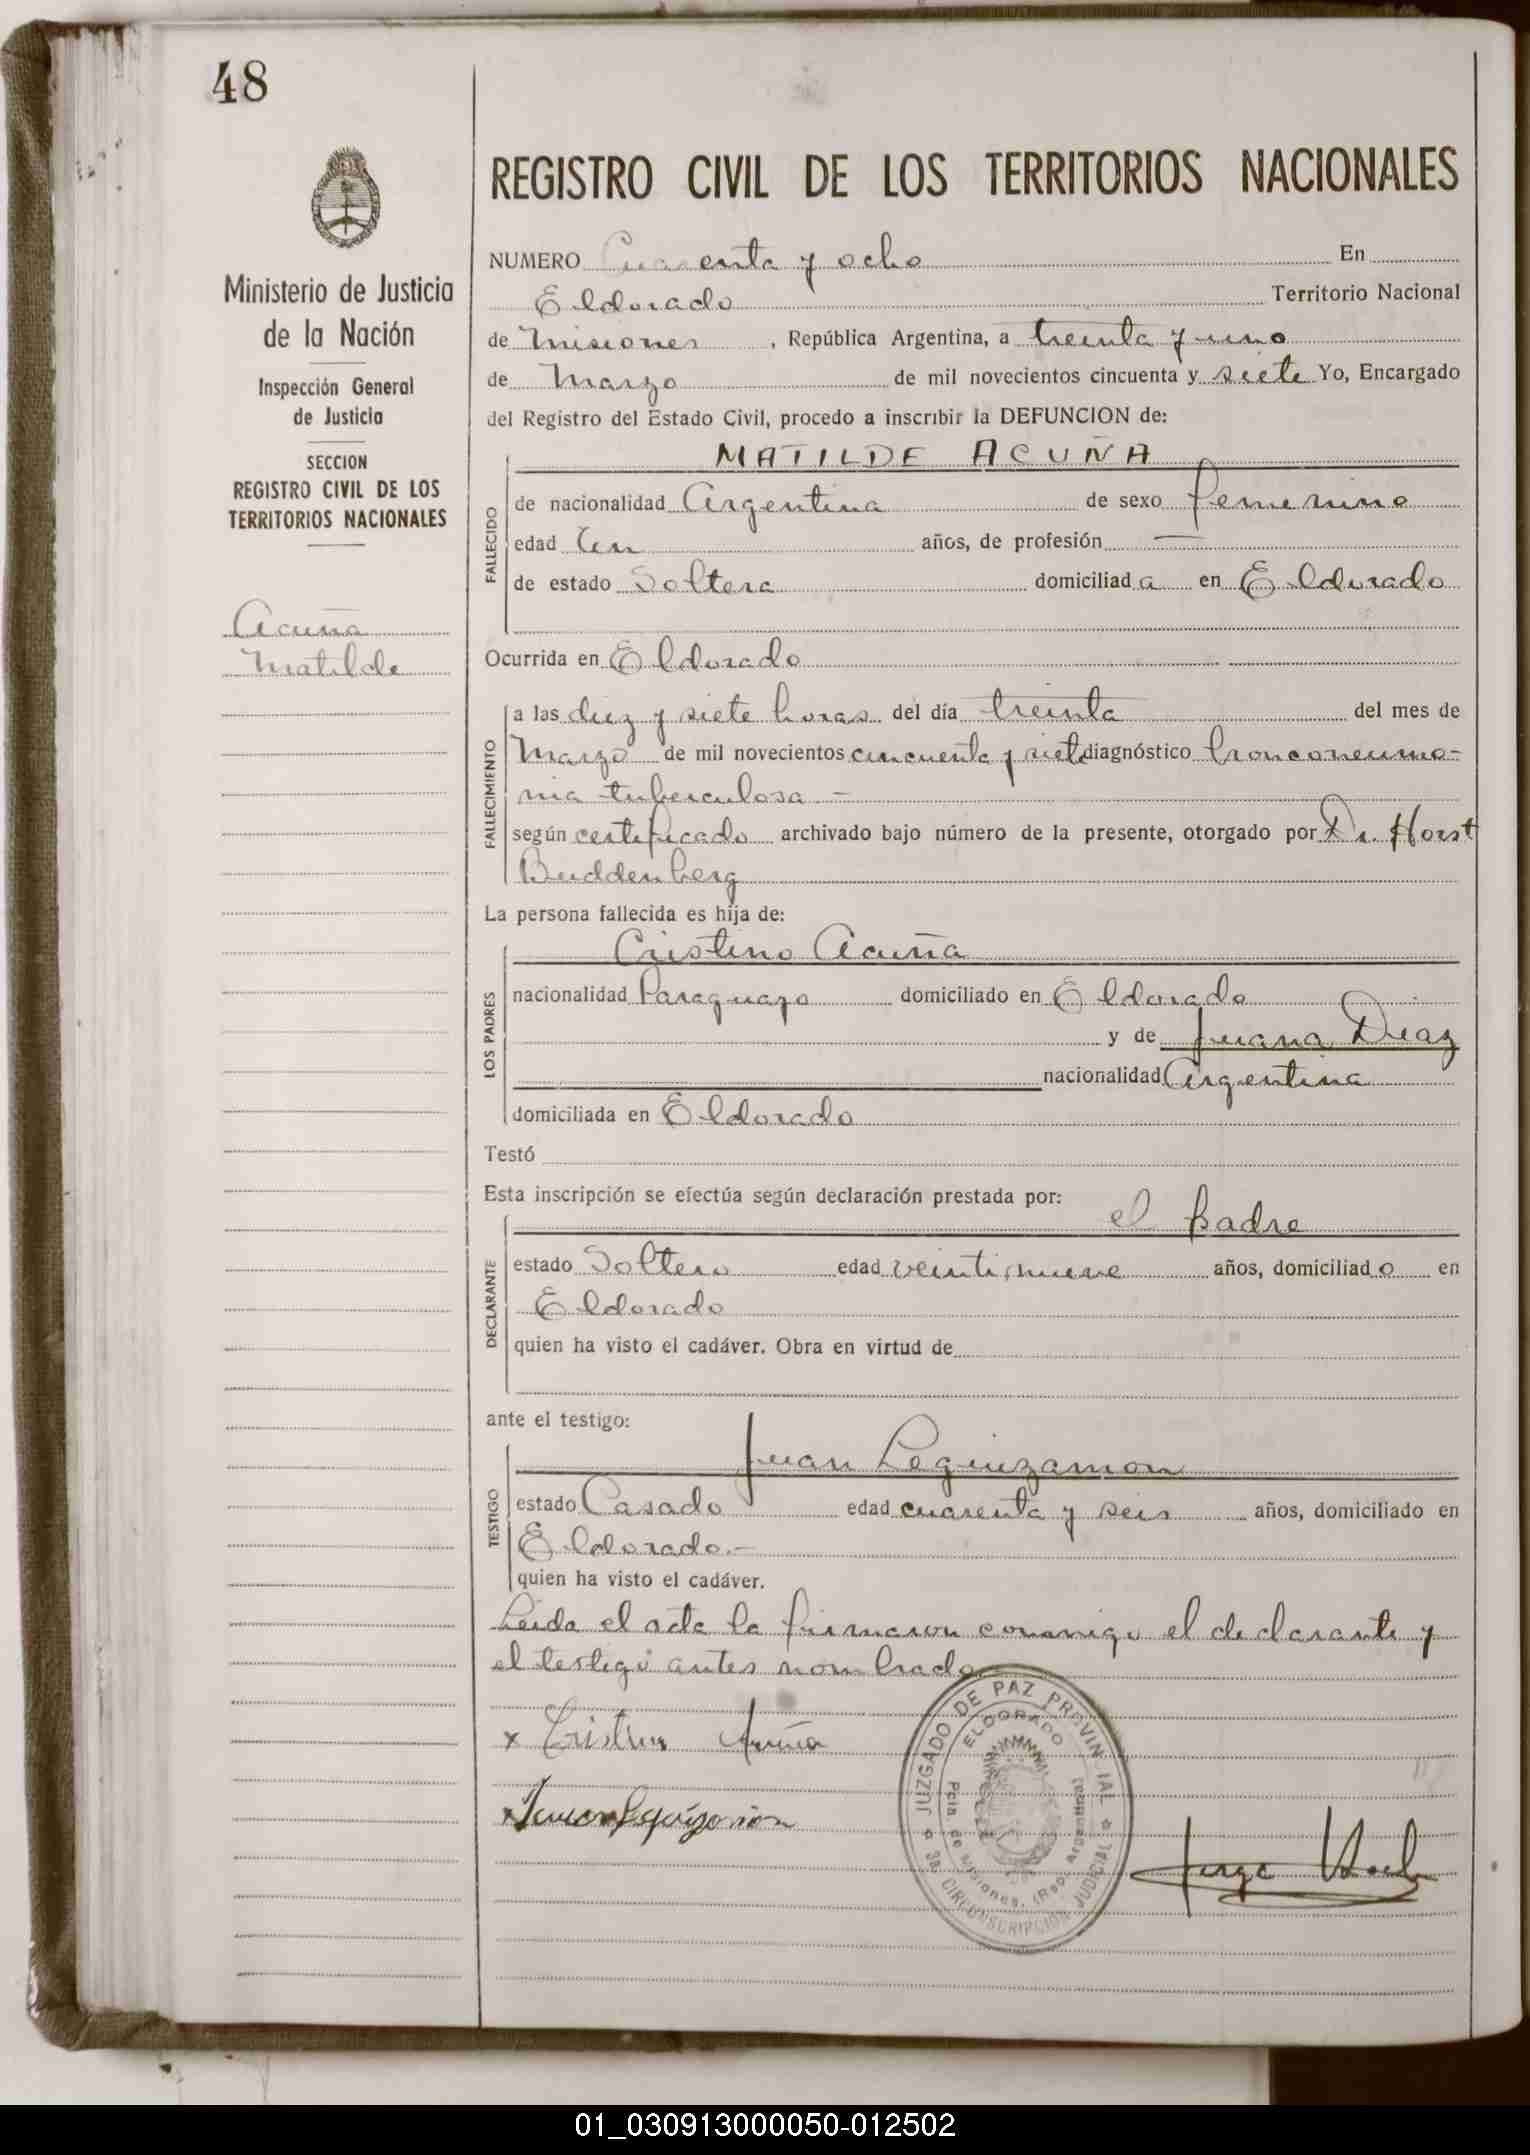 48
Ministerio de Justicia
de la Nación
Inspección General
de Justicia
SECCION
REGISTRO CIVIL DE LOS
TERRITORIOS NACIONALES
Acuña
Matilde
REGISTRO CIVIL DE LOS TERRITORIOS NACIONALES
NUMERO Cuarenta y ocho En
Eldorado Territorio Nacional
de Misiones , República Argentina, a treinta y uno
de Marzo de mil novecientos cincuenta y siete Yo, Encargado
del Registro del Estado Civil, procedo a inscribir la DEFUNCION de:
MATILDE ACUÑA
FALLECIDO
de nacionalidad Argentina de sexo femenino
edad Un años, de profesión —
de estado Soltera domiciliada en Eldorado
Ocurrida en Eldorado
FALLECIMIENTO
a las diez y siete horas del día treinta del mes de
Marzo de mil novecientos cincuenta y siete diagnóstico bronconeumo-
nia tuberculosa -
según certificado archivado bajo número de la presente, otorgado por Dr. Horst
Buddenberg
La persona fallecida es hija de:
Cristino Acuña
LOS PADRES
nacionalidad Paraguayo domiciliado en Eldorado
y de Juana Diaz
nacionalidad Argentina
domiciliada en Eldorado
Testó
Esta inscripción se efectúa según declaración prestada por:
el padre
DECLARANTE
estado Soltero edad veintinueve años, domiciliado en
Eldorado
quien ha visto el cadáver. Obra en virtud de
ante el testigo:
Juan Leguizamon
TESTIGO
estado Casado edad cuarenta y seis años, domiciliado en
Eldorado.-
quien ha visto el cadáver.
Leida el acta la firmaron conmigo el declarante y
el testigo antes nombrado.-
x Cristino Acuña
x Juan Leguizamón
JUZGADO DE PAZ PROVINCIAL
ELDORADO
Pcia. de Misiones. (Rep. Argentina)
3a. CIRCUNSCRIPCION JUDICIAL
Jorge
01_030913000050-012502